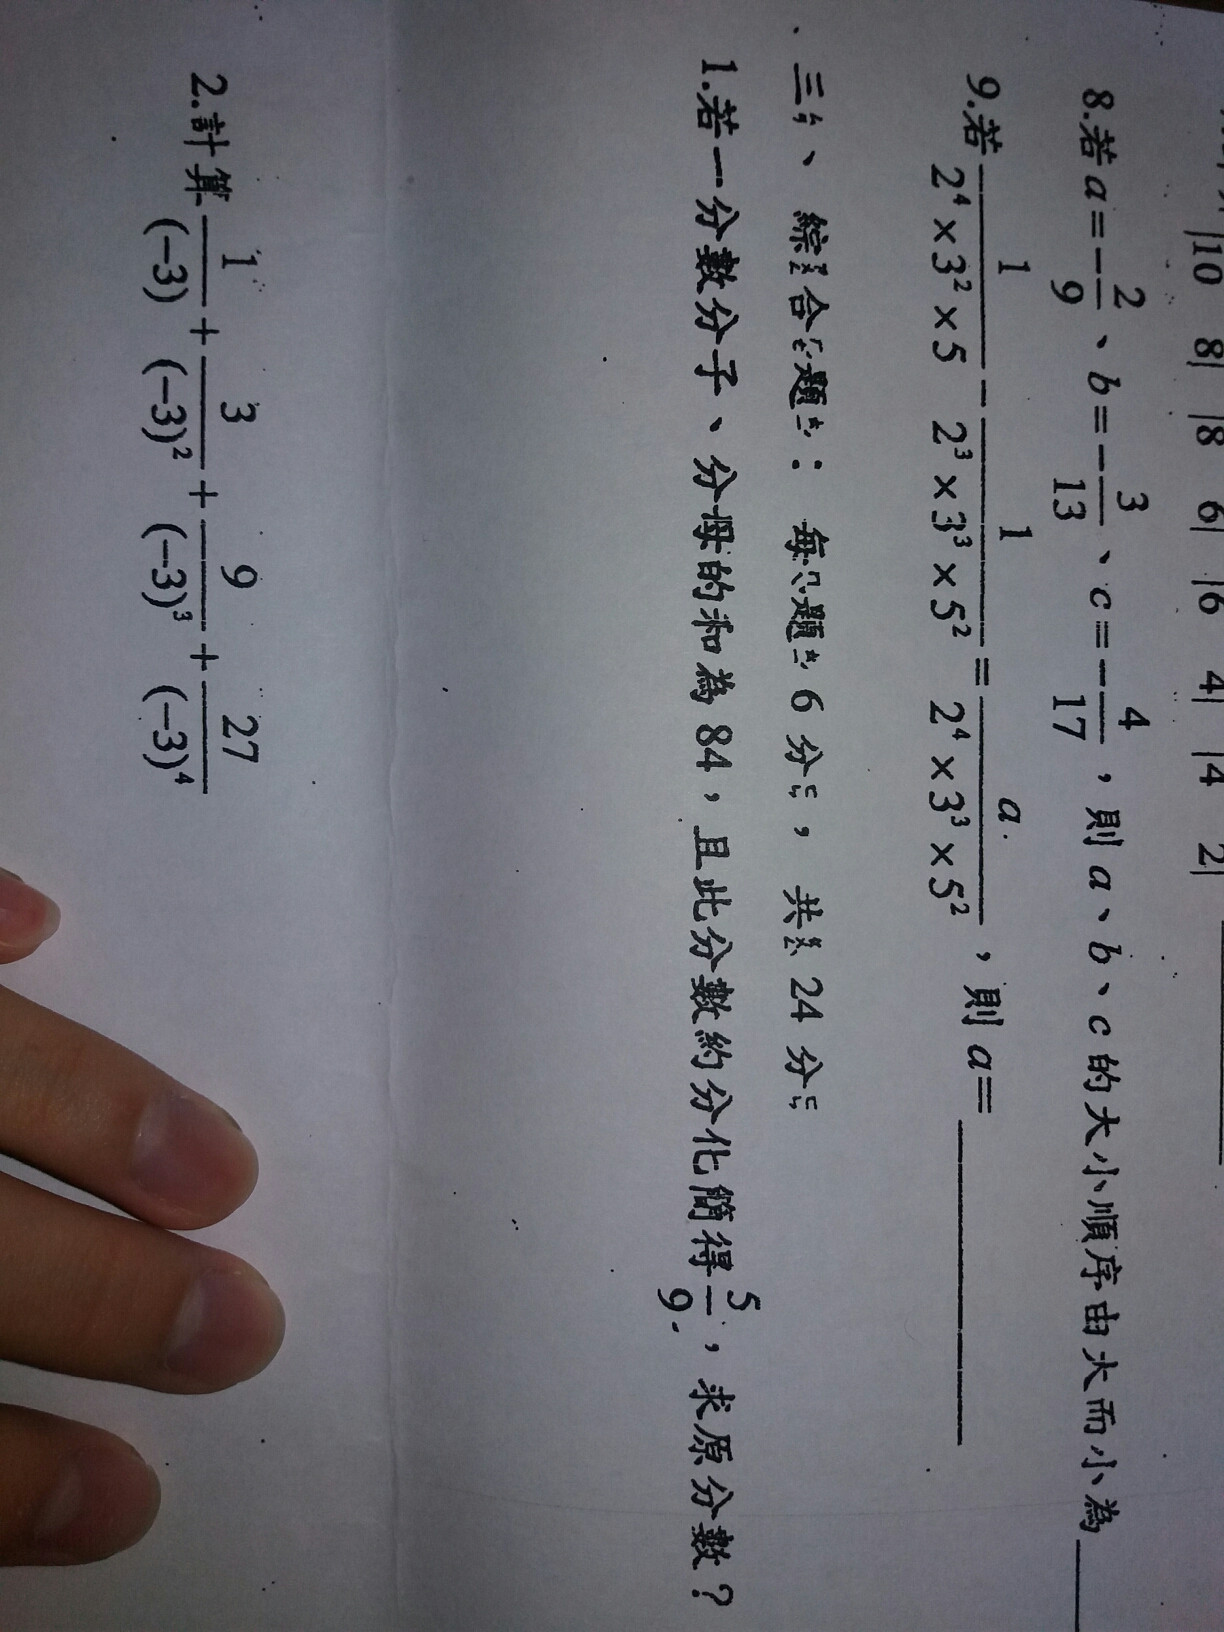 |10 8| |8 6| |6 4| |4 2|
8.若a=-2/9、b=-3/13、c=-4/17，則a、b、c的大小順序由大而小為
9.若 1/(2⁴×3²×5) - 1/(2³×3³×5²) = a/(2⁴×3³×5²)，則a=
三、綜合題：每題6分，共24分
1.若一分數分子、分母的和為84，且此分數約分化簡得5/9，求原分數？
2.計算 1/(-3) + 3/(-3)² + 9/(-3)³ + 27/(-3)⁴